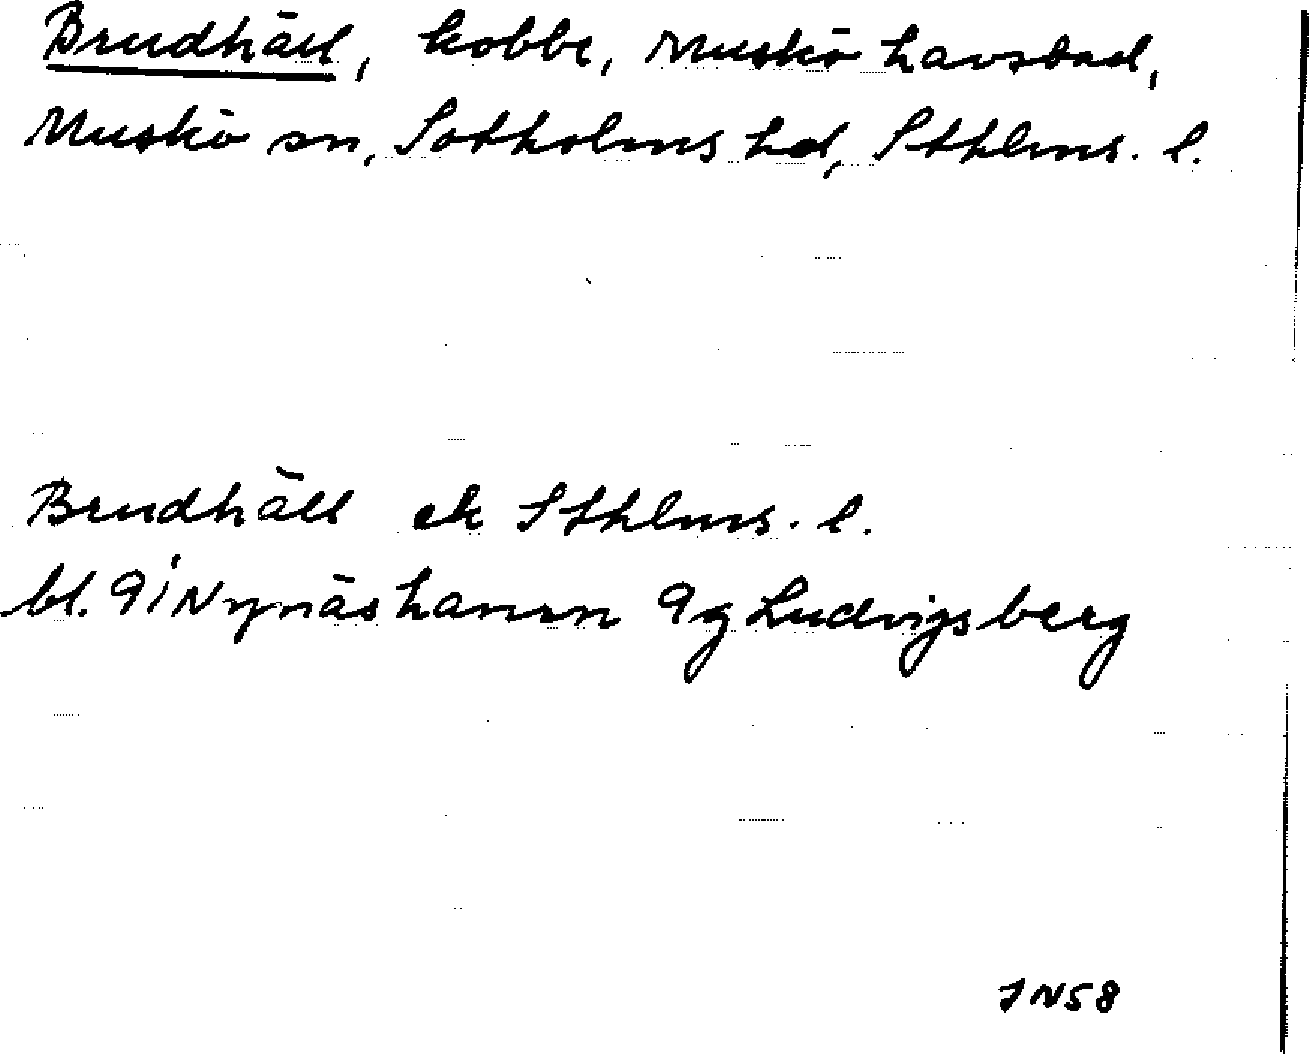 Brudhäll, kobbe, Muskö havsbad,
Muskö sn, Sotholms hd, Sthlms. l.
Brudhäll ek Sthlms. l.
bl. 9 i Nynäshamn 9g Ludvigsberg
JN58